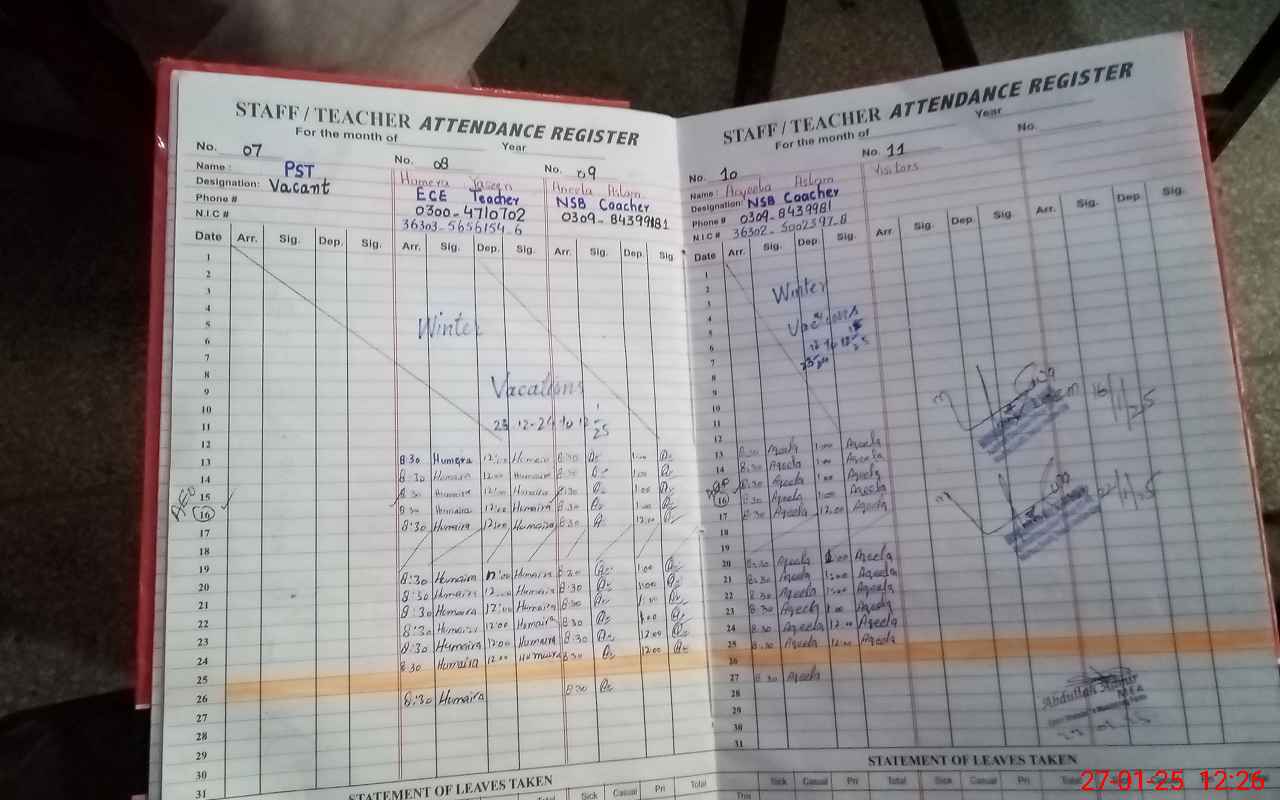 STAFF / TEACHER ATTENDANCE REGISTER
For the month of Year
No. 07 No. 08 No. 09
Name : PST Humera Yaseen Aneela Aslam
Designation: Vacant ECE Teacher NSB Coacher
Phone # 0300-4710702
N.I.C # 36303-5656154-6
Date Arr. Sig. Dep. Sig. Arr. Sig. Dep. Sig. Arr. Sig. Dep. Sig
1
2
3
4
5 Winter
6
7
8
9 Vacations
10
11
12
13 8:30 Humera 12:00 Humaira 8:30 1:00
14 8:30 Humaira 12:00 Humaira 8:30 1:00
15 8:30 Humaira 12:00 Humaira 8:30 1:00
16 8:30 Humaira 12:00 Humaira 8:30 1:00
17 8:30 Humaira 12:00 Humaira 8:30 12:00
18
19
20 8:30 Humaira 12:00 Humaira 8:30 1:00
21 8:30 Humaira 12:00 Humaira 8:30 1:00
22 8:30 Humaira 12:00 Humaira 8:30 1:00
23 8:30 Humaira 12:00 Humaira 8:30 1:00
24 8:30 Humaira 12:00 Humaira 8:30 12:00
25 8:30 Humaira 12:00 Humaira 8:30 12:00
26
27 8:30 Humaira 8:30
28
29
30
31
STATEMENT OF LEAVES TAKEN
Sick Casual Pri Total
STAFF / TEACHER ATTENDANCE REGISTER
For the month of Year
No. 10 No. 11 No.
Name : Aqeela Aslam Visitors
Designation: NSB Coacher
Phone # 0309-8439981
N.I.C # 36302-5002597-8
Date Arr. Sig. Dep. Sig. Arr Sig. Dep. Sig. Arr. Sig. Dep. Sig.
1
2
3 Winter
4
5
6
7
8
9
10
11
12
13 8:30 Aqeela 1:00 Aqeela
14 8:30 Aqeela 1:00 Aqeela
15 8:30 Aqeela 1:00 Aqeela
16 8:30 Aqeela 1:00 Aqeela
17 8:30 Aqeela 12:00 Aqeela
18
19
20 8:30 Aqeela 1:00 Aqeela
21 8:30 Aqeela 1:00 Aqeela
22 8:30 Aqeela 1:00 Aqeela
23 8:30 Aqeela 1:00 Aqeela
24 8:30 Aqeela 12:00 Aqeela
25 8:30 Aqeela 12:00 Aqeela
26
27 8:30 Aqeela
28
29
30
31
16/1/25
Abdullah
MEA
STATEMENT OF LEAVES TAKEN
Sick Casual Pri Total Sick Casual Pri Total
This
27-01-25 12:26